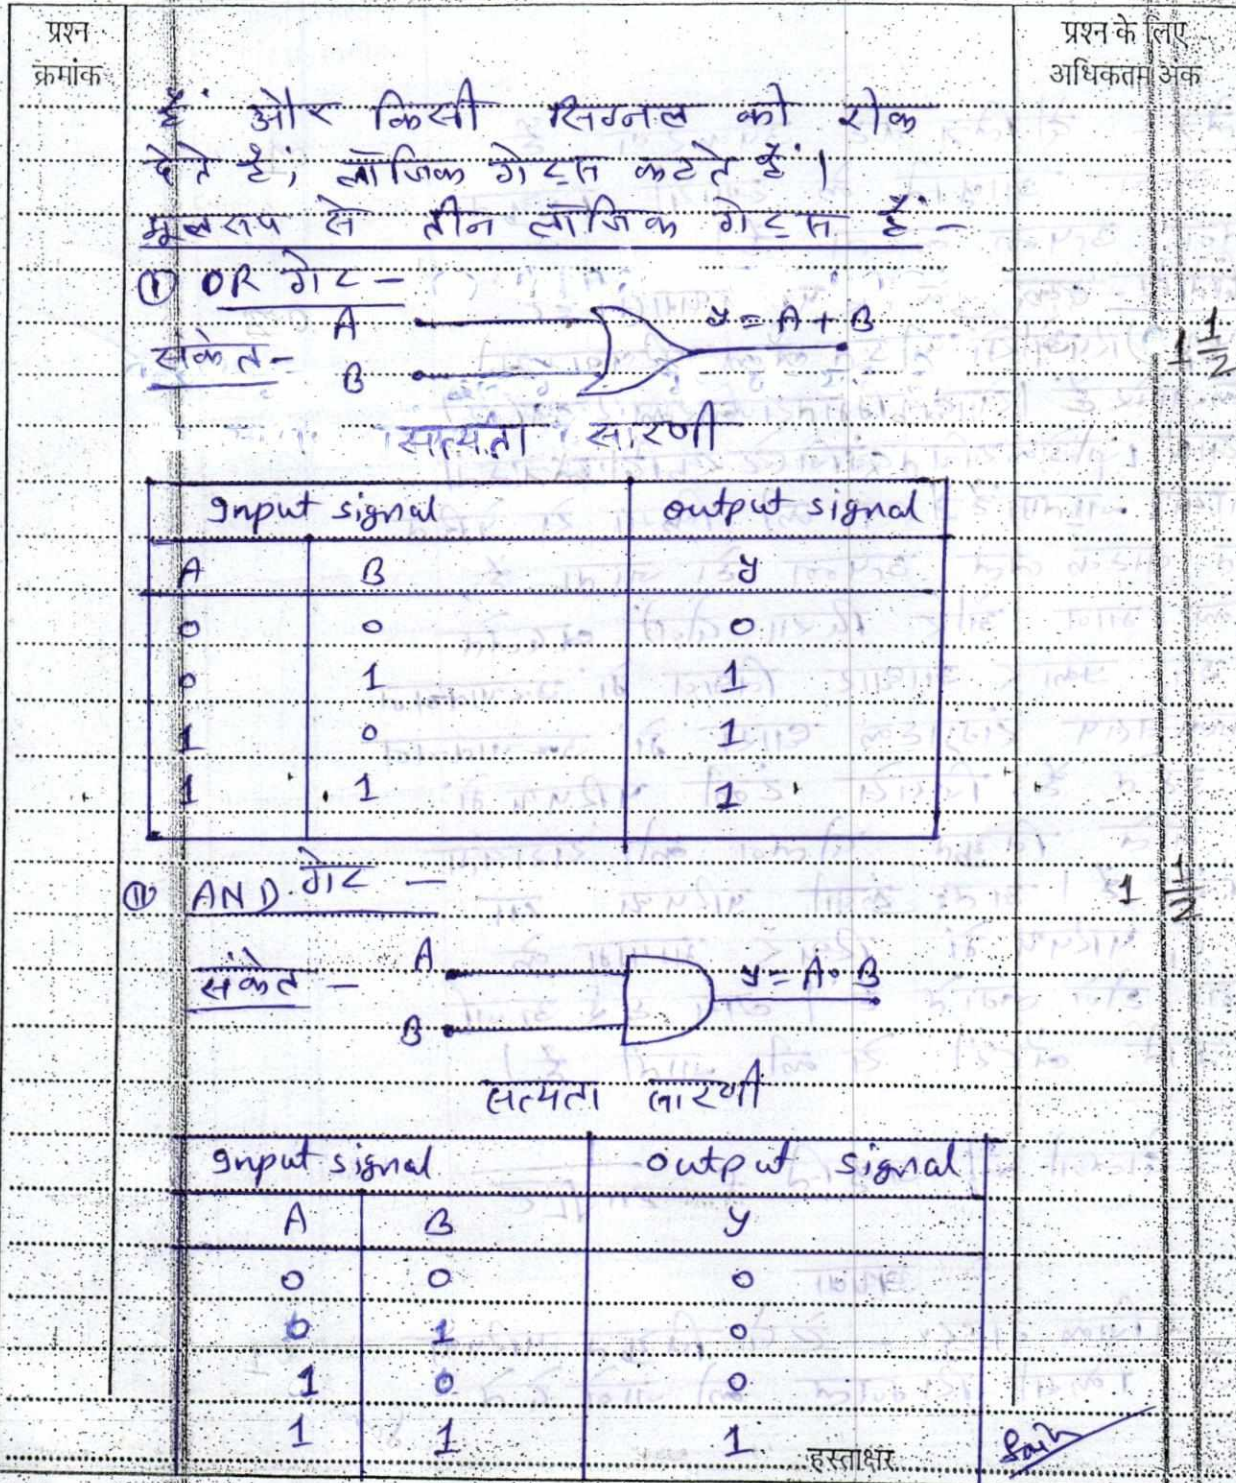 प्रश्न क्रमांक
प्रश्न के लिए अधिकतम अंक
हैं और किसी सिग्नल को रोक
देते हैं, लॉजिक गेट्स कहते हैं।
मूलरूप से तीन लॉजिक गेट्स हैं -
① OR गेट -
संकेत - A B y = A + B
1 1/2
सत्यता सारणी
Input signal output signal
A B y
0 0 0
0 1 1
1 0 1
1 1 1
② AND गेट -
1 1/2
संकेत - A B y = A • B
सत्यता सारणी
Input signal output signal
A B y
0 0 0
0 1 0
1 0 0
1 1 1
हस्ताक्षर